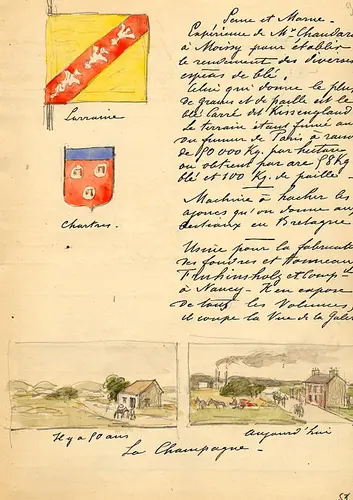 Seine et Marne.
Expérience de Mr Chandora
à Moissy pour établir
le rendement des diverses
espèces de blé.
Celui qui donne le plus
de grains et de paille est le
blé Carré dit Kissengland
Le terrain étant fumé au
du fumier de Paris à raiso
de 80 000 Kg. par hectare
on obtient par are 58 Kg
blé et 100 Kg. de paille.
Machine à hacher les
ajoncs qu'on donne aux
bestiaux en Bretagne
Usine pour la fabricatio
des foudres et tonneaux
Fruhinsholz
à Nancy. Il en expose
de tous les volumes
il coupe la Vue de la Galer
Lorraine
Chartres.
Il y a 80 ans
aujourd'hui
La Champagne